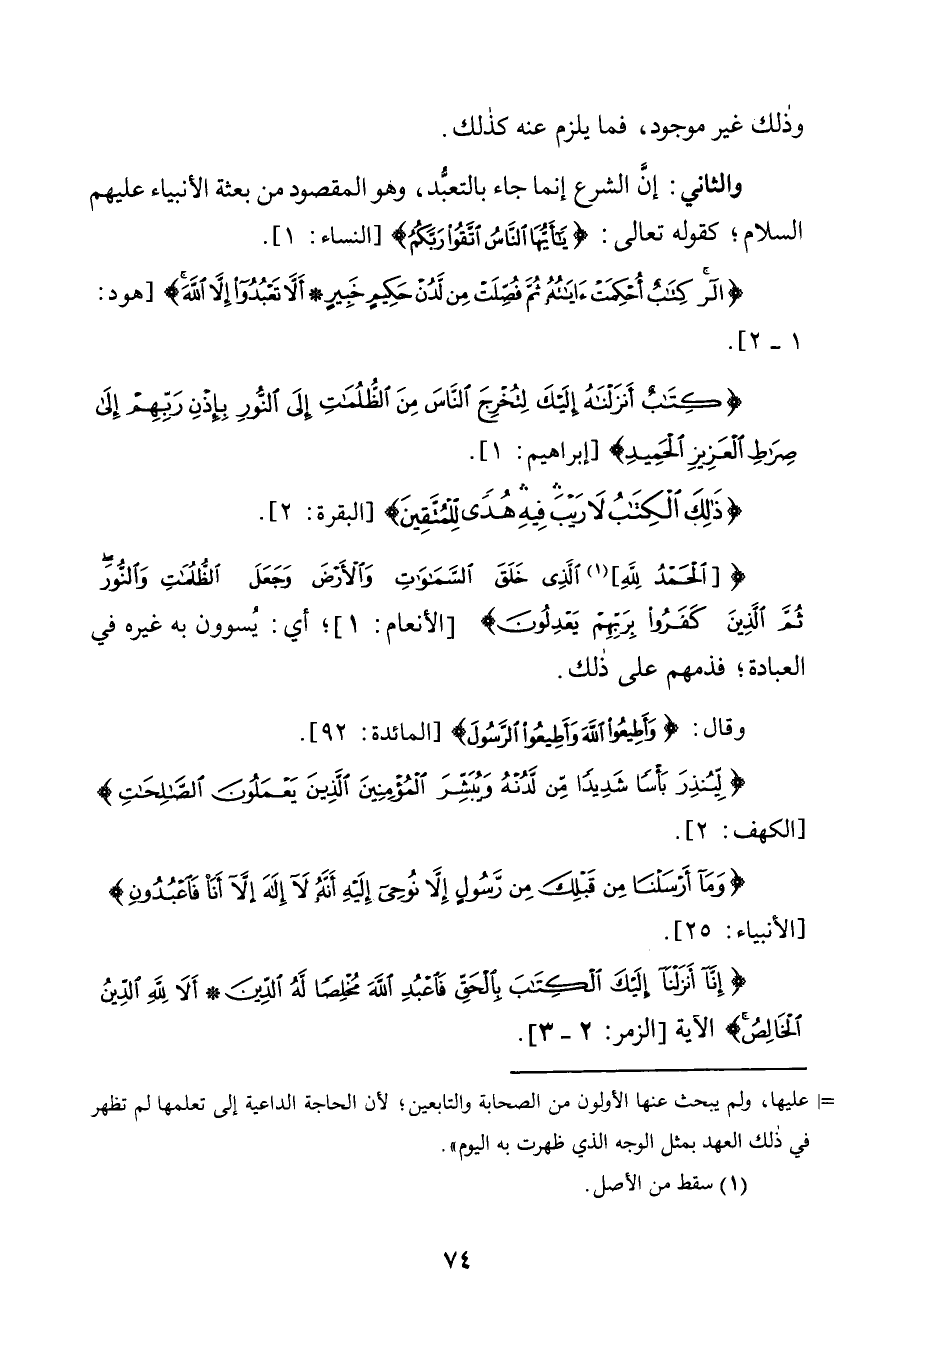 وذٰلك غير موجود، فما يلزم عنه كذٰلك.
والثاني: إنَّ الشرع إنما جاء بالتعبُّد، وهو المقصود من بعثة الأنبياء عليهم
السلام؛ كقوله تعالى: ﴿يَٰٓأَيُّهَا ٱلنَّاسُ ٱتَّقُواْ رَبَّكُمُ﴾ [النساء: ١].
﴿الٓرۚ كِتَٰبٌ أُحۡكِمَتۡ ءَايَٰتُهُۥ ثُمَّ فُصِّلَتۡ مِن لَّدُنۡ حَكِيمٍ خَبِيرٍ * أَلَّا تَعۡبُدُوٓاْ إِلَّا ٱللَّهَۚ﴾ [هود:
١ ـ ٢].
﴿كِتَٰبٌ أَنزَلۡنَٰهُ إِلَيۡكَ لِتُخۡرِجَ ٱلنَّاسَ مِنَ ٱلظُّلُمَٰتِ إِلَى ٱلنُّورِ بِإِذۡنِ رَبِّهِمۡ إِلَىٰ
صِرَٰطِ ٱلۡعَزِيزِ ٱلۡحَمِيدِ﴾ [إبراهيم: ١].
﴿ذَٰلِكَ ٱلۡكِتَٰبُ لَا رَيۡبَۛ فِيهِۛ هُدٗى لِّلۡمُتَّقِينَ﴾ [البقرة: ٢].
﴿[ٱلۡحَمۡدُ لِلَّهِ](١) ٱلَّذِي خَلَقَ ٱلسَّمَٰوَٰتِ وَٱلۡأَرۡضَ وَجَعَلَ ٱلظُّلُمَٰتِ وَٱلنُّورَۖ
ثُمَّ ٱلَّذِينَ كَفَرُواْ بِرَبِّهِمۡ يَعۡدِلُونَ﴾ [الأنعام: ١]؛ أي: يُسوون به غيره في
العبادة؛ فذمهم على ذٰلك.
وقال: ﴿وَأَطِيعُواْ ٱللَّهَ وَأَطِيعُواْ ٱلرَّسُولَ﴾ [المائدة: ٩٢].
﴿لِّيُنذِرَ بَأۡسٗا شَدِيدٗا مِّن لَّدُنۡهُ وَيُبَشِّرَ ٱلۡمُؤۡمِنِينَ ٱلَّذِينَ يَعۡمَلُونَ ٱلصَّٰلِحَٰتِ﴾
[الكهف: ٢].
﴿وَمَآ أَرۡسَلۡنَا مِن قَبۡلِكَ مِن رَّسُولٍ إِلَّا نُوحِيٓ إِلَيۡهِ أَنَّهُۥ لَآ إِلَٰهَ إِلَّآ أَنَا۠ فَٱعۡبُدُونِ﴾
[الأنبياء: ٢٥].
﴿إِنَّآ أَنزَلۡنَآ إِلَيۡكَ ٱلۡكِتَٰبَ بِٱلۡحَقِّ فَٱعۡبُدِ ٱللَّهَ مُخۡلِصٗا لَّهُ ٱلدِّينَ * أَلَا لِلَّهِ ٱلدِّينُ
ٱلۡخَالِصُۚ﴾ الآية [الزمر: ٢ ـ ٣].
=| عليها، ولم يبحث عنها الأولون من الصحابة والتابعين؛ لأن الحاجة الداعية إلى تعلمها لم تظهر
في ذٰلك العهد بمثل الوجه الذي ظهرت به اليوم».
(١) سقط من الأصل.
٧٤